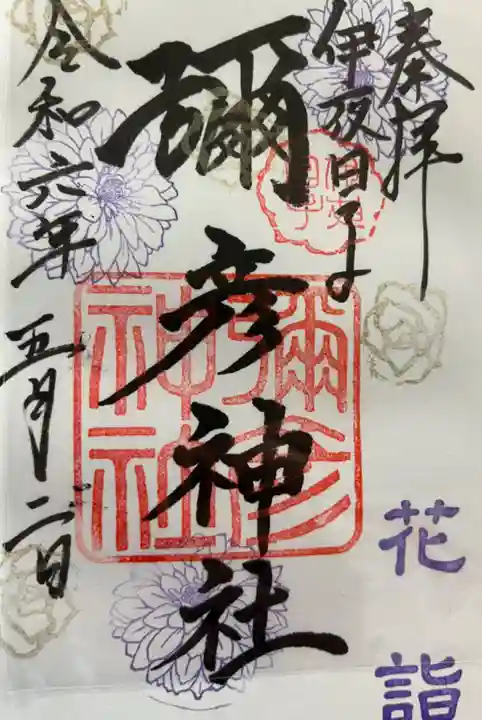 奉拝
伊夜日子
彌彦神社
令和六年 五月二日
彌彦
神社
花詣